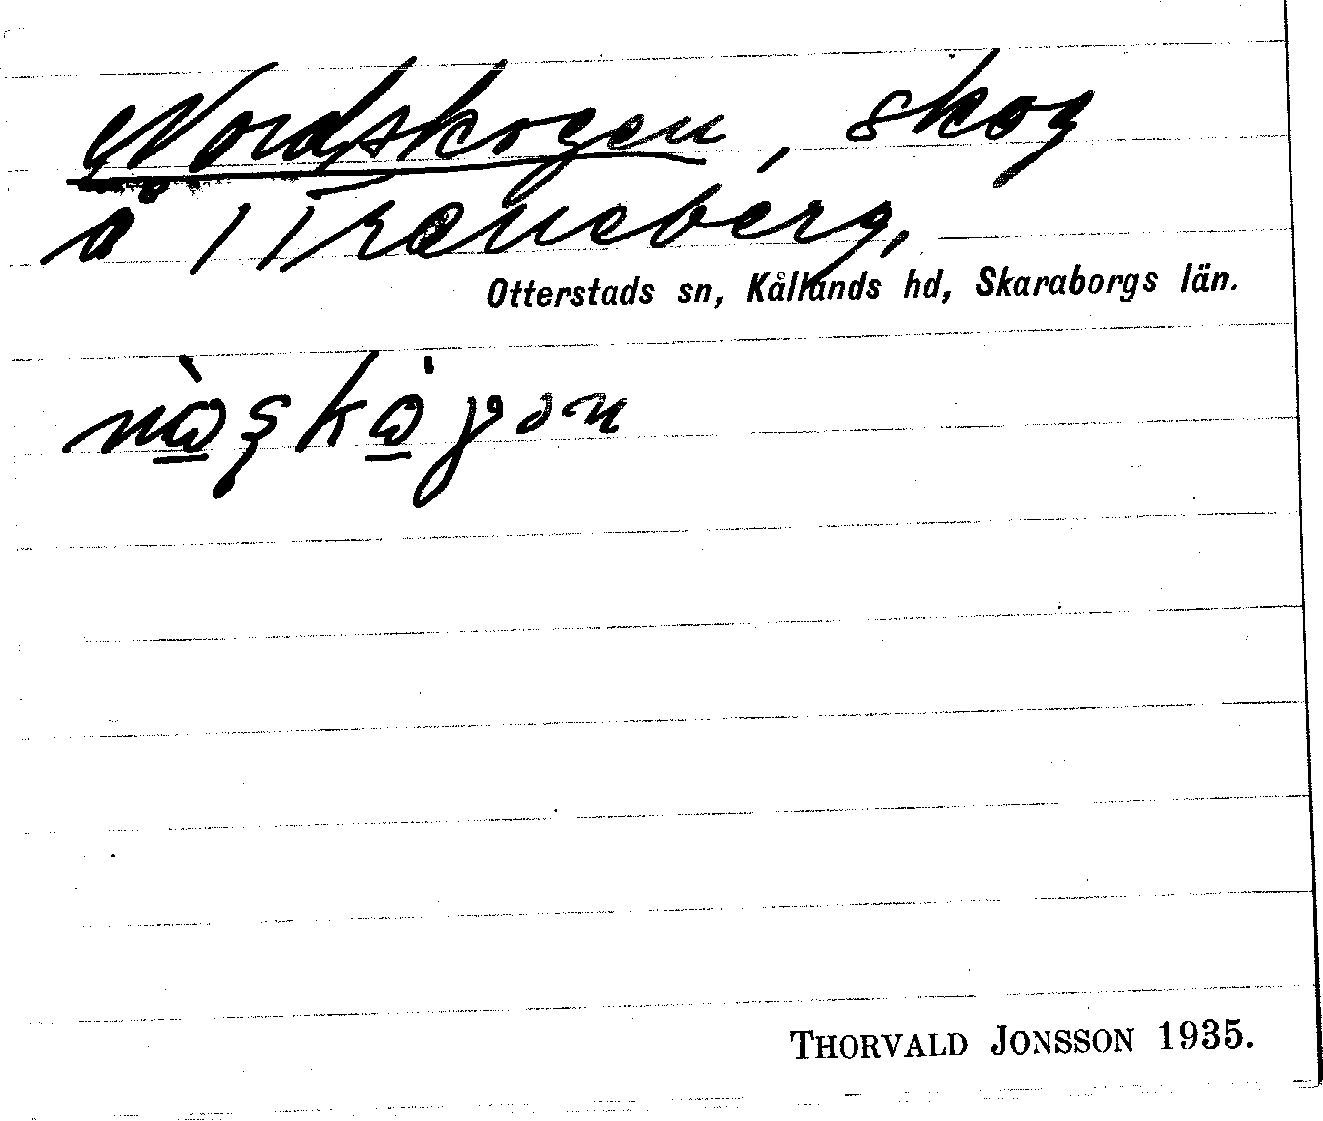 Nordskogen, skog
å 1 Traneberg,
Otterstads sn, Kållands hd, Skaraborgs län.
THORVALD JONSSON 1935.